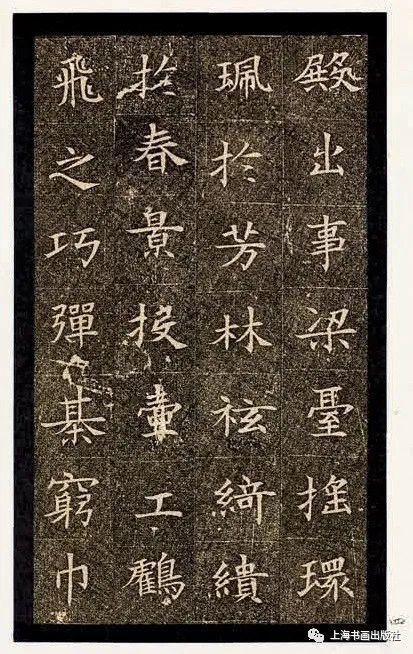 殿出事梁臺搖環
珮於芳林袨綺繢
於春景投壺工鶴
飛之巧彈棊窮巾
上海书画出版社